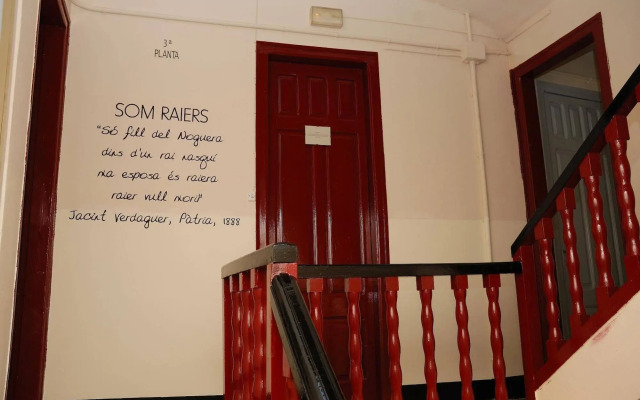 3ª
PLANTA
SOM RAIERS
"Só fill del Noguera
dins d'un rai nasquí
ma esposa és raiera
raier vull morí"
Jacint Verdaguer, Pàtria, 1888